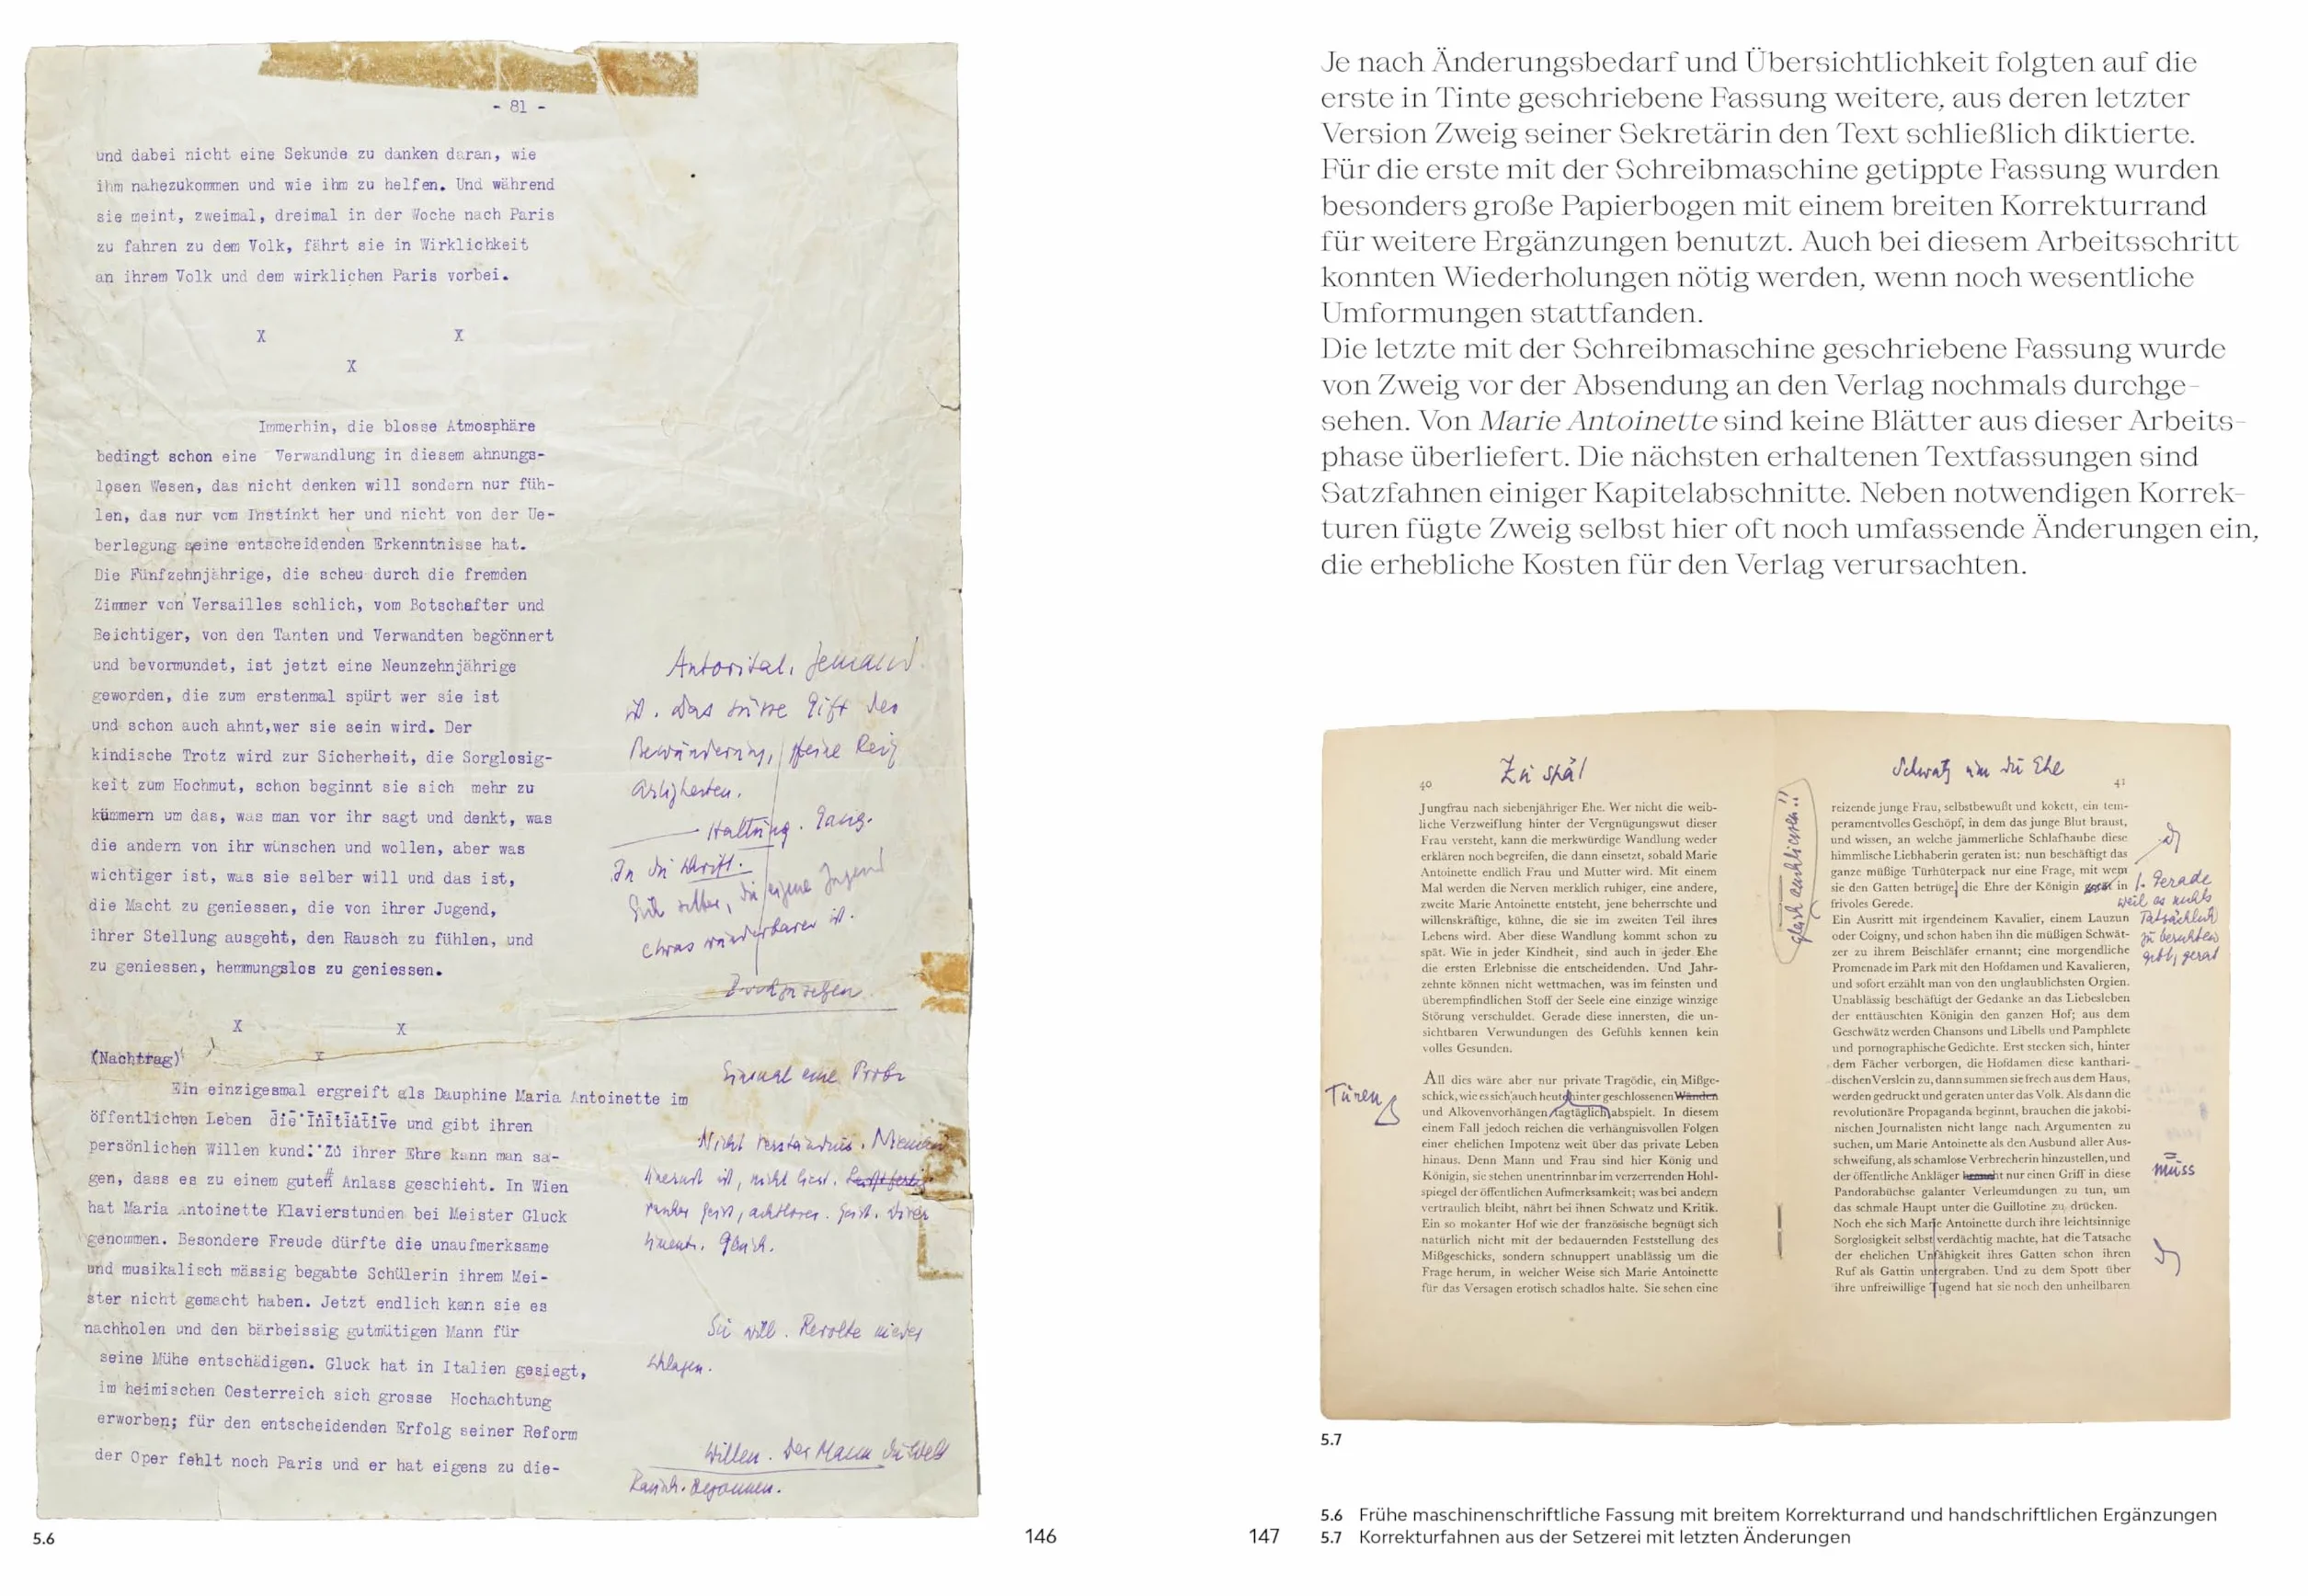 - 81 -
und dabei nicht eine Sekunde zu danken daran, wie
ihm nahezukommen und wie ihm zu helfen. Und während
sie meint, zweimal, dreimal in der Woche nach Paris
zu fahren zu dem Volk, fährt sie in Wirklichkeit
an ihrem Volk und dem wirklichen Paris vorbei.
X X
X
Immerhin, die blosse Atmosphäre
bedingt schon eine Verwandlung in diesem ahnungs-
losen Wesen, das nicht denken will sondern nur füh-
len, das nur vom Instinkt her und nicht von der Ue-
berlegung seine entscheidenden Erkenntnisse hat.
Die Fünfzehnjährige, die scheu durch die fremden
Zimmer von Versailles schlich, vom Botschafter und
Beichtiger, von den Tanten und Verwandten begönnert
und bevormundet, ist jetzt eine Neunzehnjährige
geworden, die zum erstenmal spürt wer sie ist
und schon auch ahnt,wer sie sein wird. Der
kindische Trotz wird zur Sicherheit, die Sorglosig-
keit zum Hochmut, schon beginnt sie sich mehr zu
kümmern um das, was man vor ihr sagt und denkt, was
die andern von ihr wünschen und wollen, aber was
wichtiger ist, was sie selber will und das ist,
die Macht zu geniessen, die von ihrer Jugend,
ihrer Stellung ausgeht, den Rausch zu fühlen, und
zu geniessen, hemmungslos zu geniessen.
Autorität. Jemand
ist. Das süsse Gift der
Bewunderung, feine Reiz
Artigkeiten.
Haltung. Gang.
In die Schrift.
Sich selber, die eigene Jugend
etwas wunderbares ist.
X X
X
(Nachtrag)
Ein einzigesmal ergreift als Dauphine Maria Antoinette im
öffentlichen Leben die Initiative und gibt ihren
persönlichen Willen kund: Zu ihrer Ehre kann man sa-
gen, dass es zu einem guten Anlass geschieht. In Wien
hat Maria Antoinette Klavierstunden bei Meister Gluck
genommen. Besondere Freude dürfte die unaufmerksame
und musikalisch mässig begabte Schülerin ihrem Mei-
ster nicht gemacht haben. Jetzt endlich kann sie es
nachholen und den bärbeissig gutmütigen Mann für
seine Mühe entschädigen. Gluck hat in Italien gesiegt,
im heimischen Oesterreich sich grosse Hochachtung
erworben; für den entscheidenden Erfolg seiner Reform
der Oper fehlt noch Paris und er hat eigens zu die-
Einmal eine Probe
Nicht Verständnis.
Sie will. Revolte nieder
schlagen.
Willen. Der Mann die Welt
5.6
146
Je nach Änderungsbedarf und Übersichtlichkeit folgten auf die
erste in Tinte geschriebene Fassung weitere, aus deren letzter
Version Zweig seiner Sekretärin den Text schließlich diktierte.
Für die erste mit der Schreibmaschine getippte Fassung wurden
besonders große Papierbogen mit einem breiten Korrekturrand
für weitere Ergänzungen benutzt. Auch bei diesem Arbeitsschritt
konnten Wiederholungen nötig werden, wenn noch wesentliche
Umformungen stattfanden.
Die letzte mit der Schreibmaschine geschriebene Fassung wurde
von Zweig vor der Absendung an den Verlag nochmals durchge-
sehen. Von Marie Antoinette sind keine Blätter aus dieser Arbeits-
phase überliefert. Die nächsten erhaltenen Textfassungen sind
Satzfahnen einiger Kapitelabschnitte. Neben notwendigen Korrek-
turen fügte Zweig selbst hier oft noch umfassende Änderungen ein,
die erhebliche Kosten für den Verlag verursachten.
Zu spät
40
Jungfrau nach siebenjähriger Ehe. Wer nicht die weib-
liche Verzweiflung hinter der Vergnügungswut dieser
Frau versteht, kann die merkwürdige Wandlung weder
erklären noch begreifen, die dann einsetzt, sobald Marie
Antoinette endlich Frau und Mutter wird. Mit einem
Mal werden die Nerven merklich ruhiger, eine andere,
zweite Marie Antoinette entsteht, jene beherrschte und
willenskräftige, kühne, die sie im zweiten Teil ihres
Lebens wird. Aber diese Wandlung kommt schon zu
spät. Wie in jeder Kindheit, sind auch in jeder Ehe
die ersten Erlebnisse die entscheidenden. Und Jahr-
zehnte können nicht wettmachen, was im feinsten und
überempfindlichen Stoff der Seele eine einzige winzige
Störung verschuldet. Gerade diese innersten, die un-
sichtbaren Verwundungen des Gefühls kennen kein
volles Gesunden.
All dies wäre aber nur private Tragödie, ein Mißge-
schick, wie es sich auch heute hinter geschlossenen Wänden
und Alkovenvorhängen tagtäglich abspielt. In diesem
einem Fall jedoch reichen die verhängnisvollen Folgen
einer ehelichen Impotenz weit über das private Leben
hinaus. Denn Mann und Frau sind hier König und
Königin, sie stehen unentrinnbar im verzerrenden Hohl-
spiegel der öffentlichen Aufmerksamkeit; was bei andern
vertraulich bleibt, nährt bei ihnen Schwatz und Kritik.
Ein so mokanter Hof wie der französische begnügt sich
natürlich nicht mit der bedauernden Feststellung des
Mißgeschicks, sondern schnuppert unablässig um die
Frage herum, in welcher Weise sich Marie Antoinette
für das Versagen erotisch schadlos halte. Sie sehen eine
Türen
gleich anschliessen!!
Schwatz um die Ehe
41
reizende junge Frau, selbstbewußt und kokett, ein tem-
peramentvolles Geschöpf, in dem das junge Blut braust,
und wissen, an welche jämmerliche Schlafhaube diese
himmlische Liebhaberin geraten ist: nun beschäftigt das
ganze müßige Türhüterpack nur eine Frage, mit wem
sie den Gatten betrüge; die Ehre der Königin in
frivoles Gerede.
Ein Ausritt mit irgendeinem Kavalier, einem Lauzun
oder Coigny, und schon haben ihn die müßigen Schwät-
zer zu ihrem Beischläfer ernannt; eine morgendliche
Promenade im Park mit den Hofdamen und Kavalieren,
und sofort erzählt man von den unglaublichsten Orgien.
Unablässig beschäftigt der Gedanke an das Liebesleben
der enttäuschten Königin den ganzen Hof; aus dem
Geschwätz werden Chansons und Libells und Pamphlete
und pornographische Gedichte. Erst stecken sich, hinter
dem Fächer verborgen, die Hofdamen diese kanthari-
dischen Verslein zu, dann summen sie frech aus dem Haus,
werden gedruckt und geraten unter das Volk. Als dann die
revolutionäre Propaganda beginnt, brauchen die jakobi-
nischen Journalisten nicht lange nach Argumenten zu
suchen, um Marie Antoinette als den Ausbund aller Aus-
schweifung, als schamlose Verbrecherin hinzustellen, und
der öffentliche Ankläger braucht nur einen Griff in diese
Pandorabüchse galanter Verleumdungen zu tun, um
das schmale Haupt unter die Guillotine zu drücken.
Noch ehe sich Marie Antoinette durch ihre leichtsinnige
Sorglosigkeit selbst verdächtig machte, hat die Tatsache
der ehelichen Unfähigkeit ihres Gatten schon ihren
Ruf als Gattin untergraben. Und zu dem Spott über
ihre unfreiwillige Tugend hat sie noch den unheilbaren
Gerade
weil es nichts
Tatsächlich
zu berichten
gibt, gerät
muss
5.7
5.6 Frühe maschinenschriftliche Fassung mit breitem Korrekturrand und handschriftlichen Ergänzungen
147
5.7 Korrekturfahnen aus der Setzerei mit letzten Änderungen